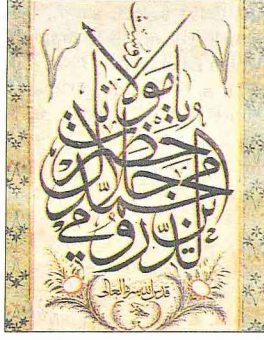 يا حضرت مولانا
محمد جلال الدين رومي
قدس الله سره العالی